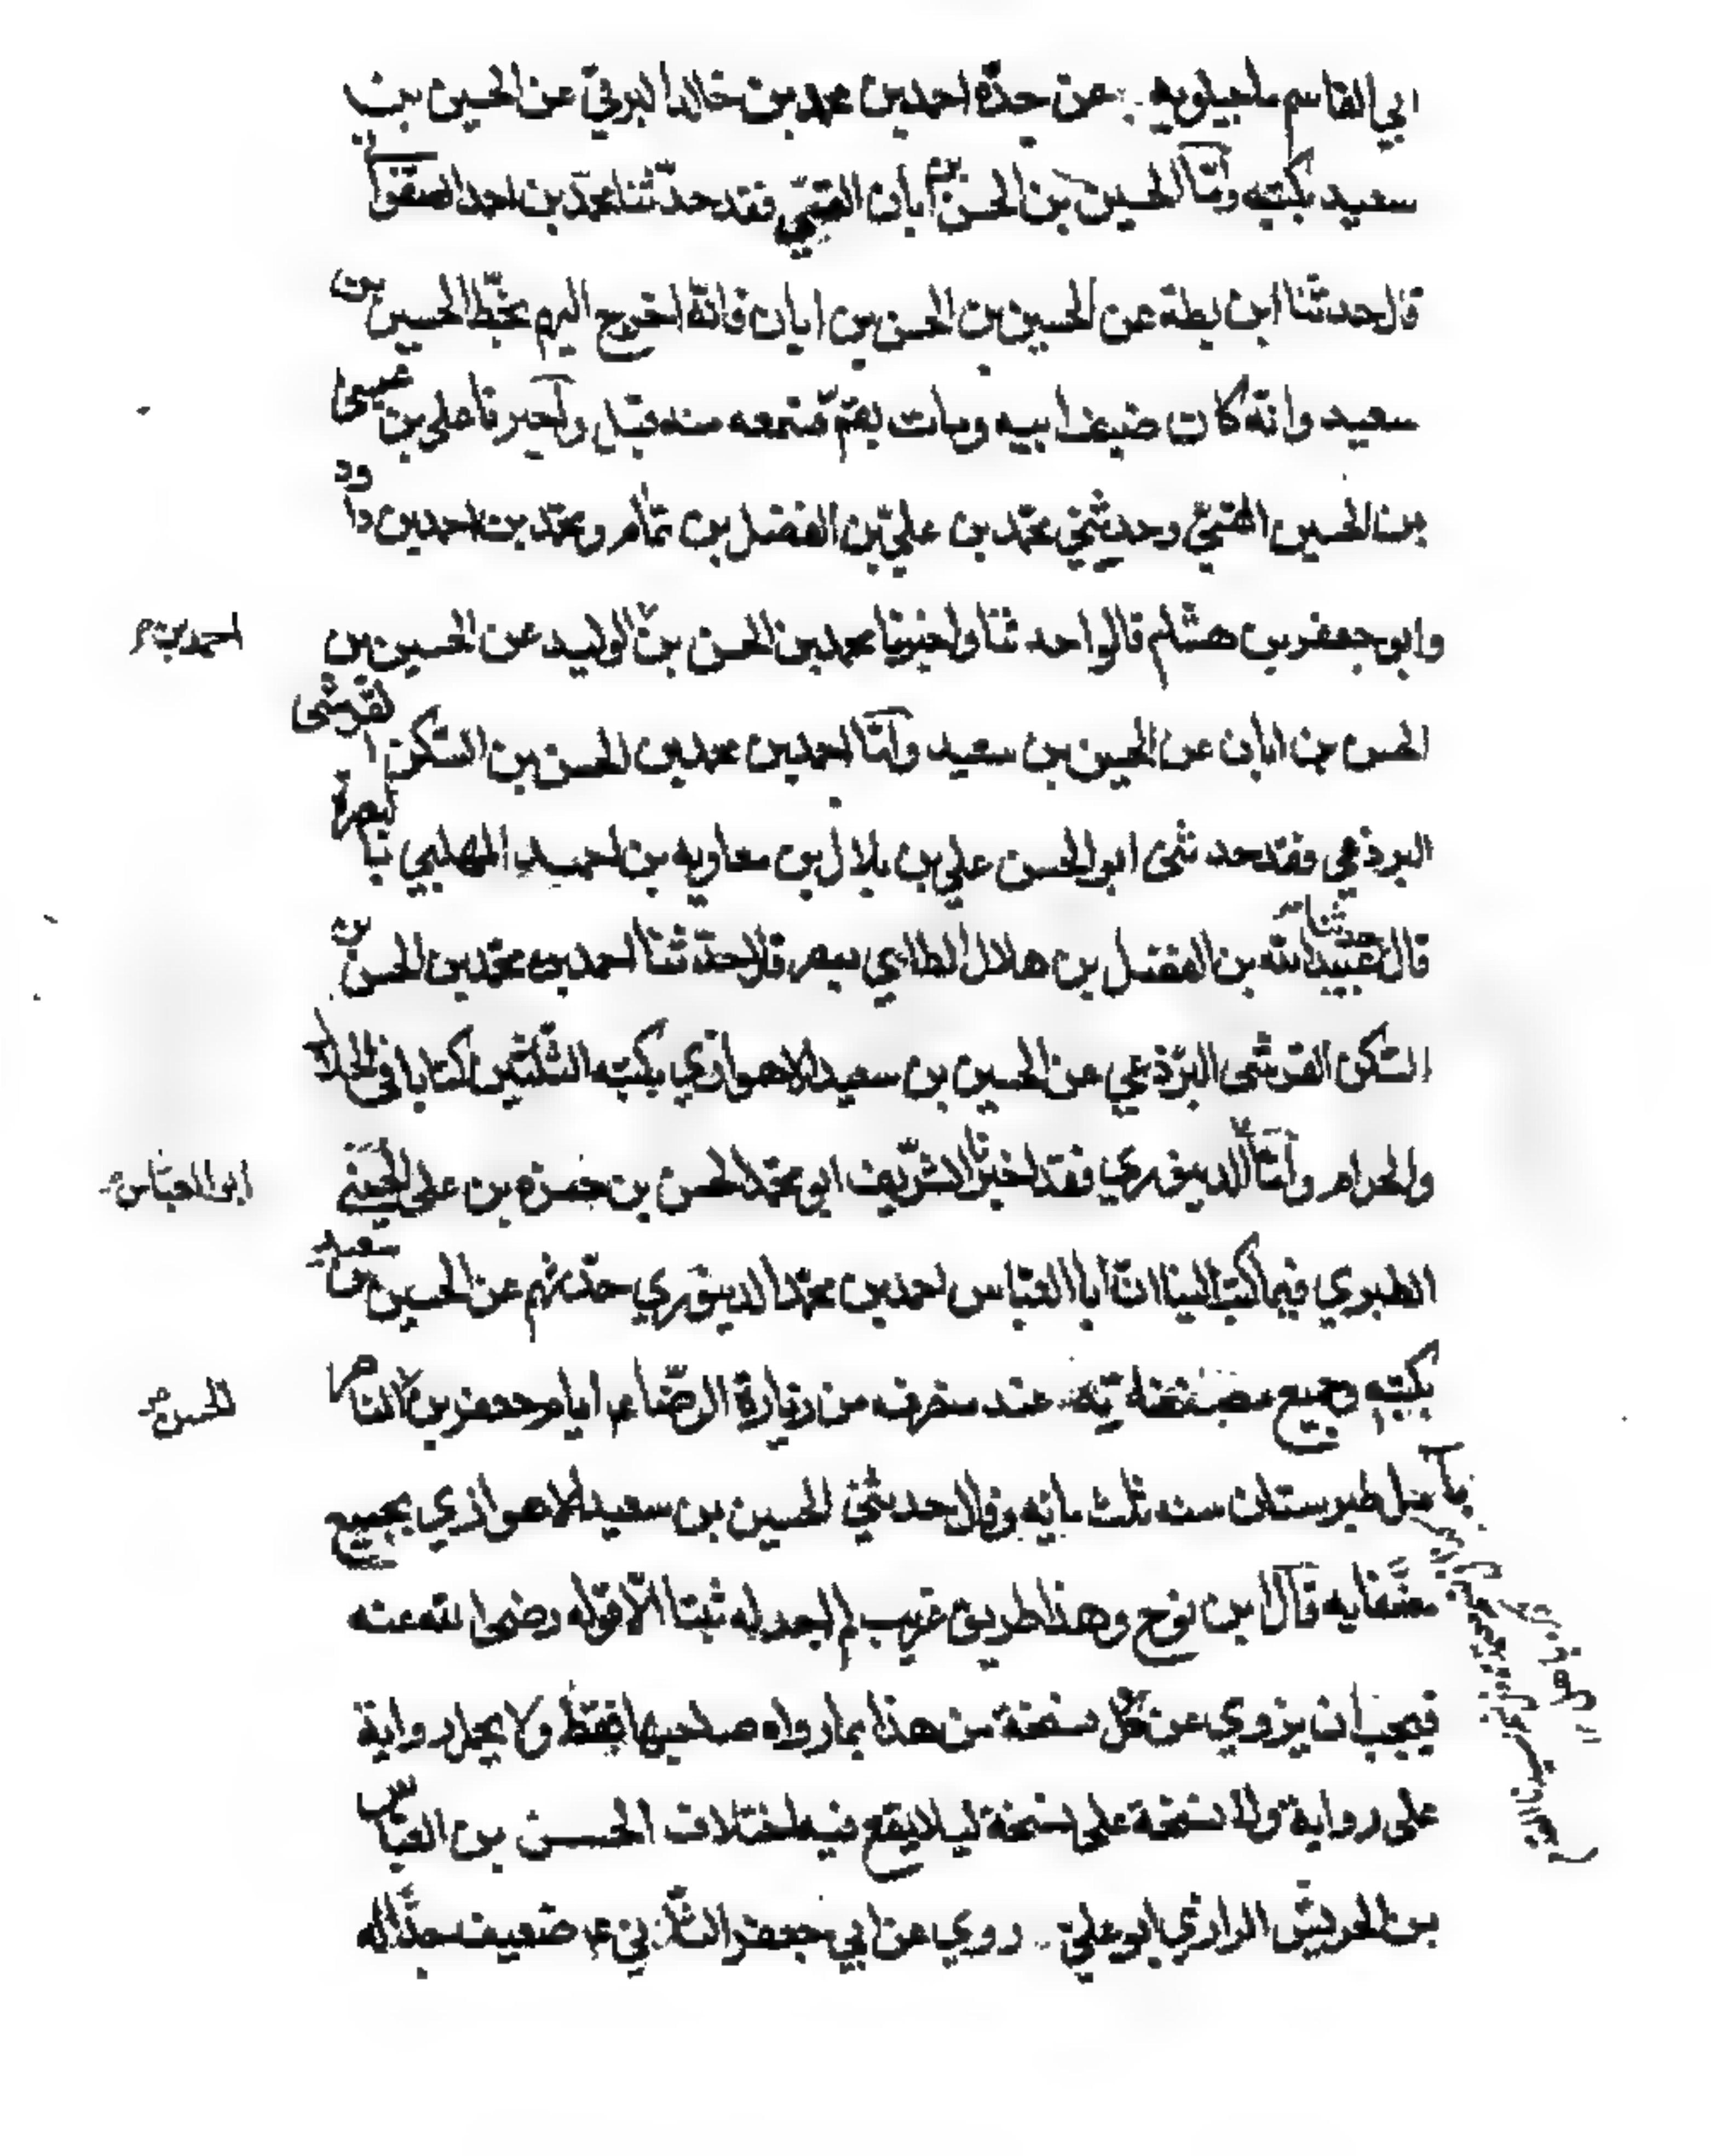 ابي القاسم ماجيلويه عن جدّه احمد بن محمد بن خالد البرقيّ عن الحسين بن
سعيد بكتبه وامّا الحسين بن الحسن بن ابان القمّي فقد حدّثنا محمّد بن احمد الصفوانى
قال حدثنا ابن بطة عن الحسين بن الحسن بن ابان فانّه اخرج اليهم بخطّ الحسين بن
سعيد وانّه كان ضيف ابيه ومات بقم فسمعه منه قبل واخبرنا على بن عيسى
بن الحسين القميّ وحدثني محمّد بن عليّ بن الفضل بن تمام ومحمّد بن احمد بن داود
وابو جعفر بن هشام قالوا حدثنا واخبرنا محمد بن الحسن بن الوليد عن الحسين بن
احمد بن
الحسن بن ابان عن الحسين بن سعيد وامّا احمد بن محمد بن الحسن بن السكن القرشى
البرذعي فقد حدثنى ابو الحسن علي بن بلال بن معاويه بن احمد المهلبي بالبصرة
قال حدثنا عبيد الله بن الفضل بن هلال الطاءي بمصر قال حدّثنا احمد بن محمّد بن الحسن بن
السكن القرشى البرّذعي عن الحسين بن سعيد الاهوازي بكتبه الثلثين كتابا فى الحلال
والحرام وامّا الدينوري فقد اخبرنا الشريف ابو محمّد الحسن بن حمزه بن على الحسيني
ابو العباس
الطبري فيما كتب الينا انّ ابا العبّاس احمد بن محمّد الدينوري حدّثهم عن الحسين بن سعيد
بكتبه وجميع مصنفاته عند منصرفه من زيارة الرضّا ء ايام جعفر بن الناصر
الحسن
بآمل طبرستان سنه ثلث مايه وقال حدثني الحسين بن سعيد الاهوازي بجميع
مصنّفايه قال ابن نوح وهذا طريق غريب لم اجد له ثبتا الّا قوله رضى الله عنه
فيجب ان يروي عن كل نسخة من هذا بما رواه صاحبها فقط ولا يحمل رواية
على رواية ولا نسخة على نسخة ليلا يقع فيه اختلاف الحسن بن العبّاس
بن الحريش الرازي ابو علي روي عن ابي جعفر الثاني ء ضعيف جدّا له